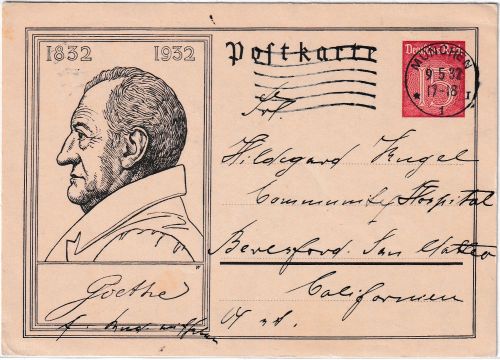 1832 1932
Postkarte
Deutsches Reich
15
MÜNCHEN
9.5.32
17-18
* 1 I
Frl.
Hildegard Kugel
Community Hospital
Beresford. San Mateo
Californien
Goethe